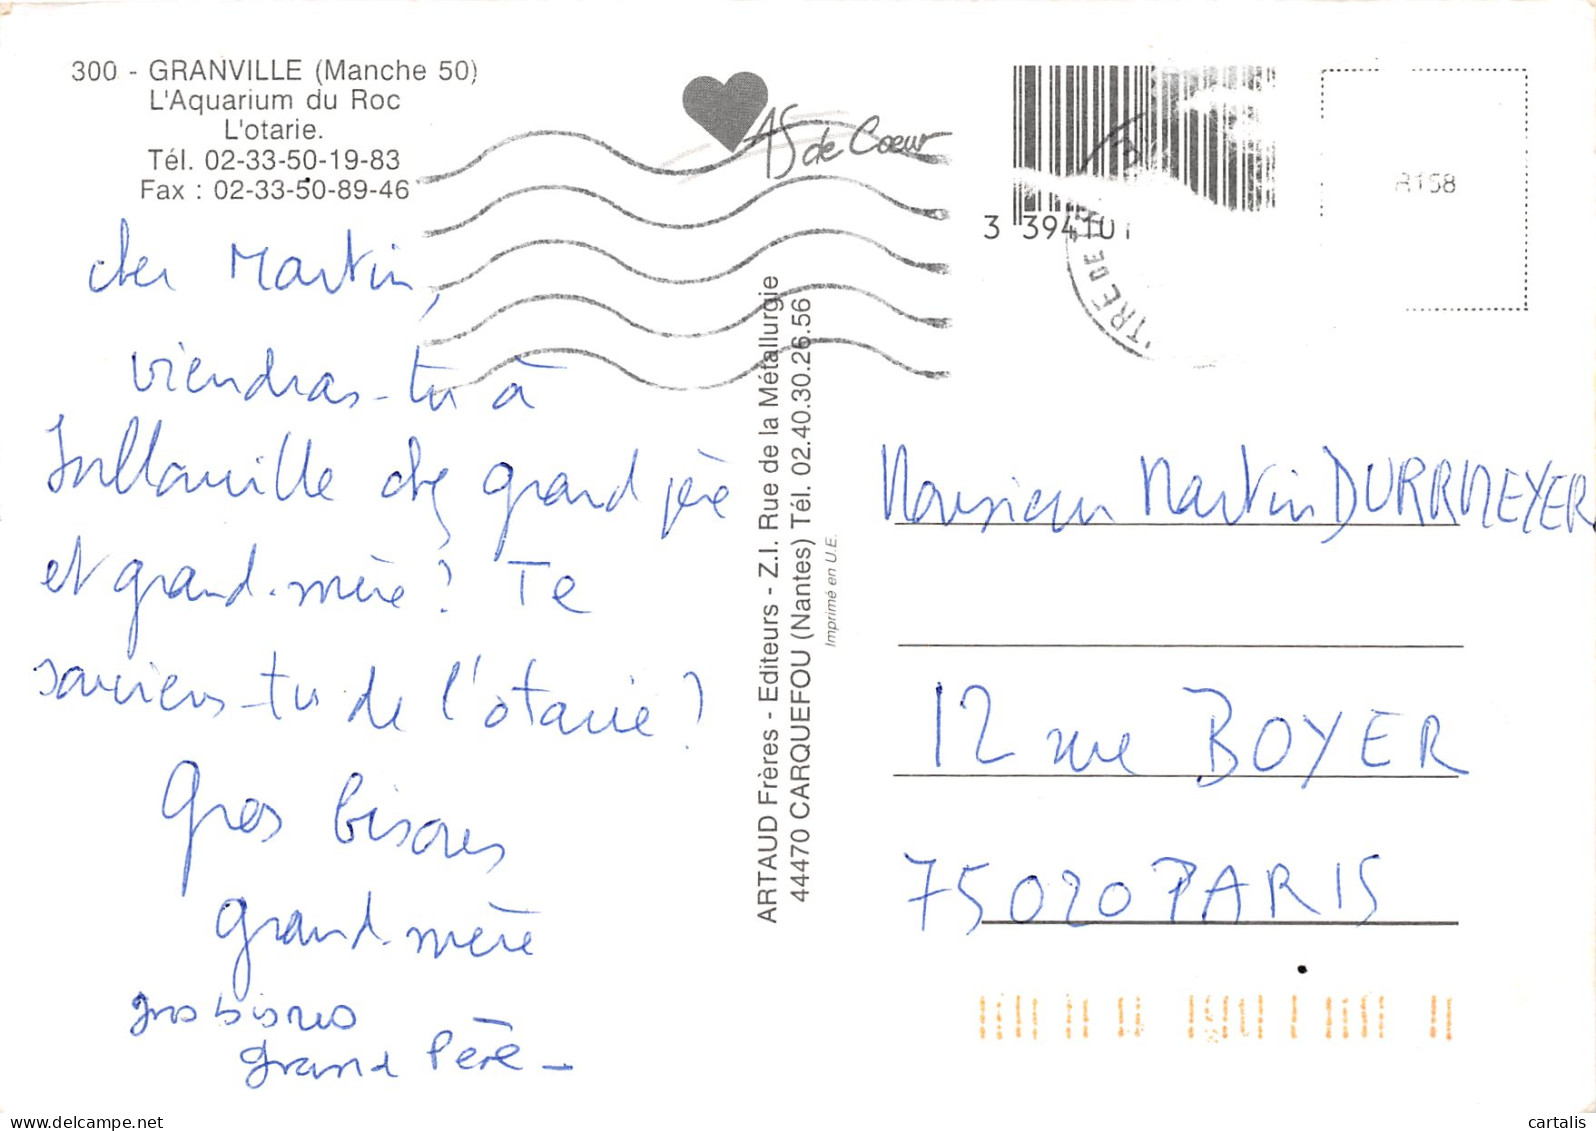 300 - GRANVILLE (Manche 50)
L'Aquarium du Roc
L'otarie.
Tél. 02-33-50-19-83
Fax : 02-33-50-89-46
AS de Coeur
3 394101
R158
TRE DE
cher Martin,
viendras-tu à
Jullouville chez grand père
et grand-mère ? Te
souviens-tu de l'otarie ?
Gros bisous
grand-mère
gros bisous
Grand Père -
ARTAUD Frères - Editeurs - Z.I. Rue de la Métallurgie
44470 CARQUEFOU (Nantes) Tél. 02.40.30.26.56
Imprimé en U.E.
Monsieur Martin DURRMEYER
12 rue BOYER
75020 PARIS
delcampe.net
cartalis